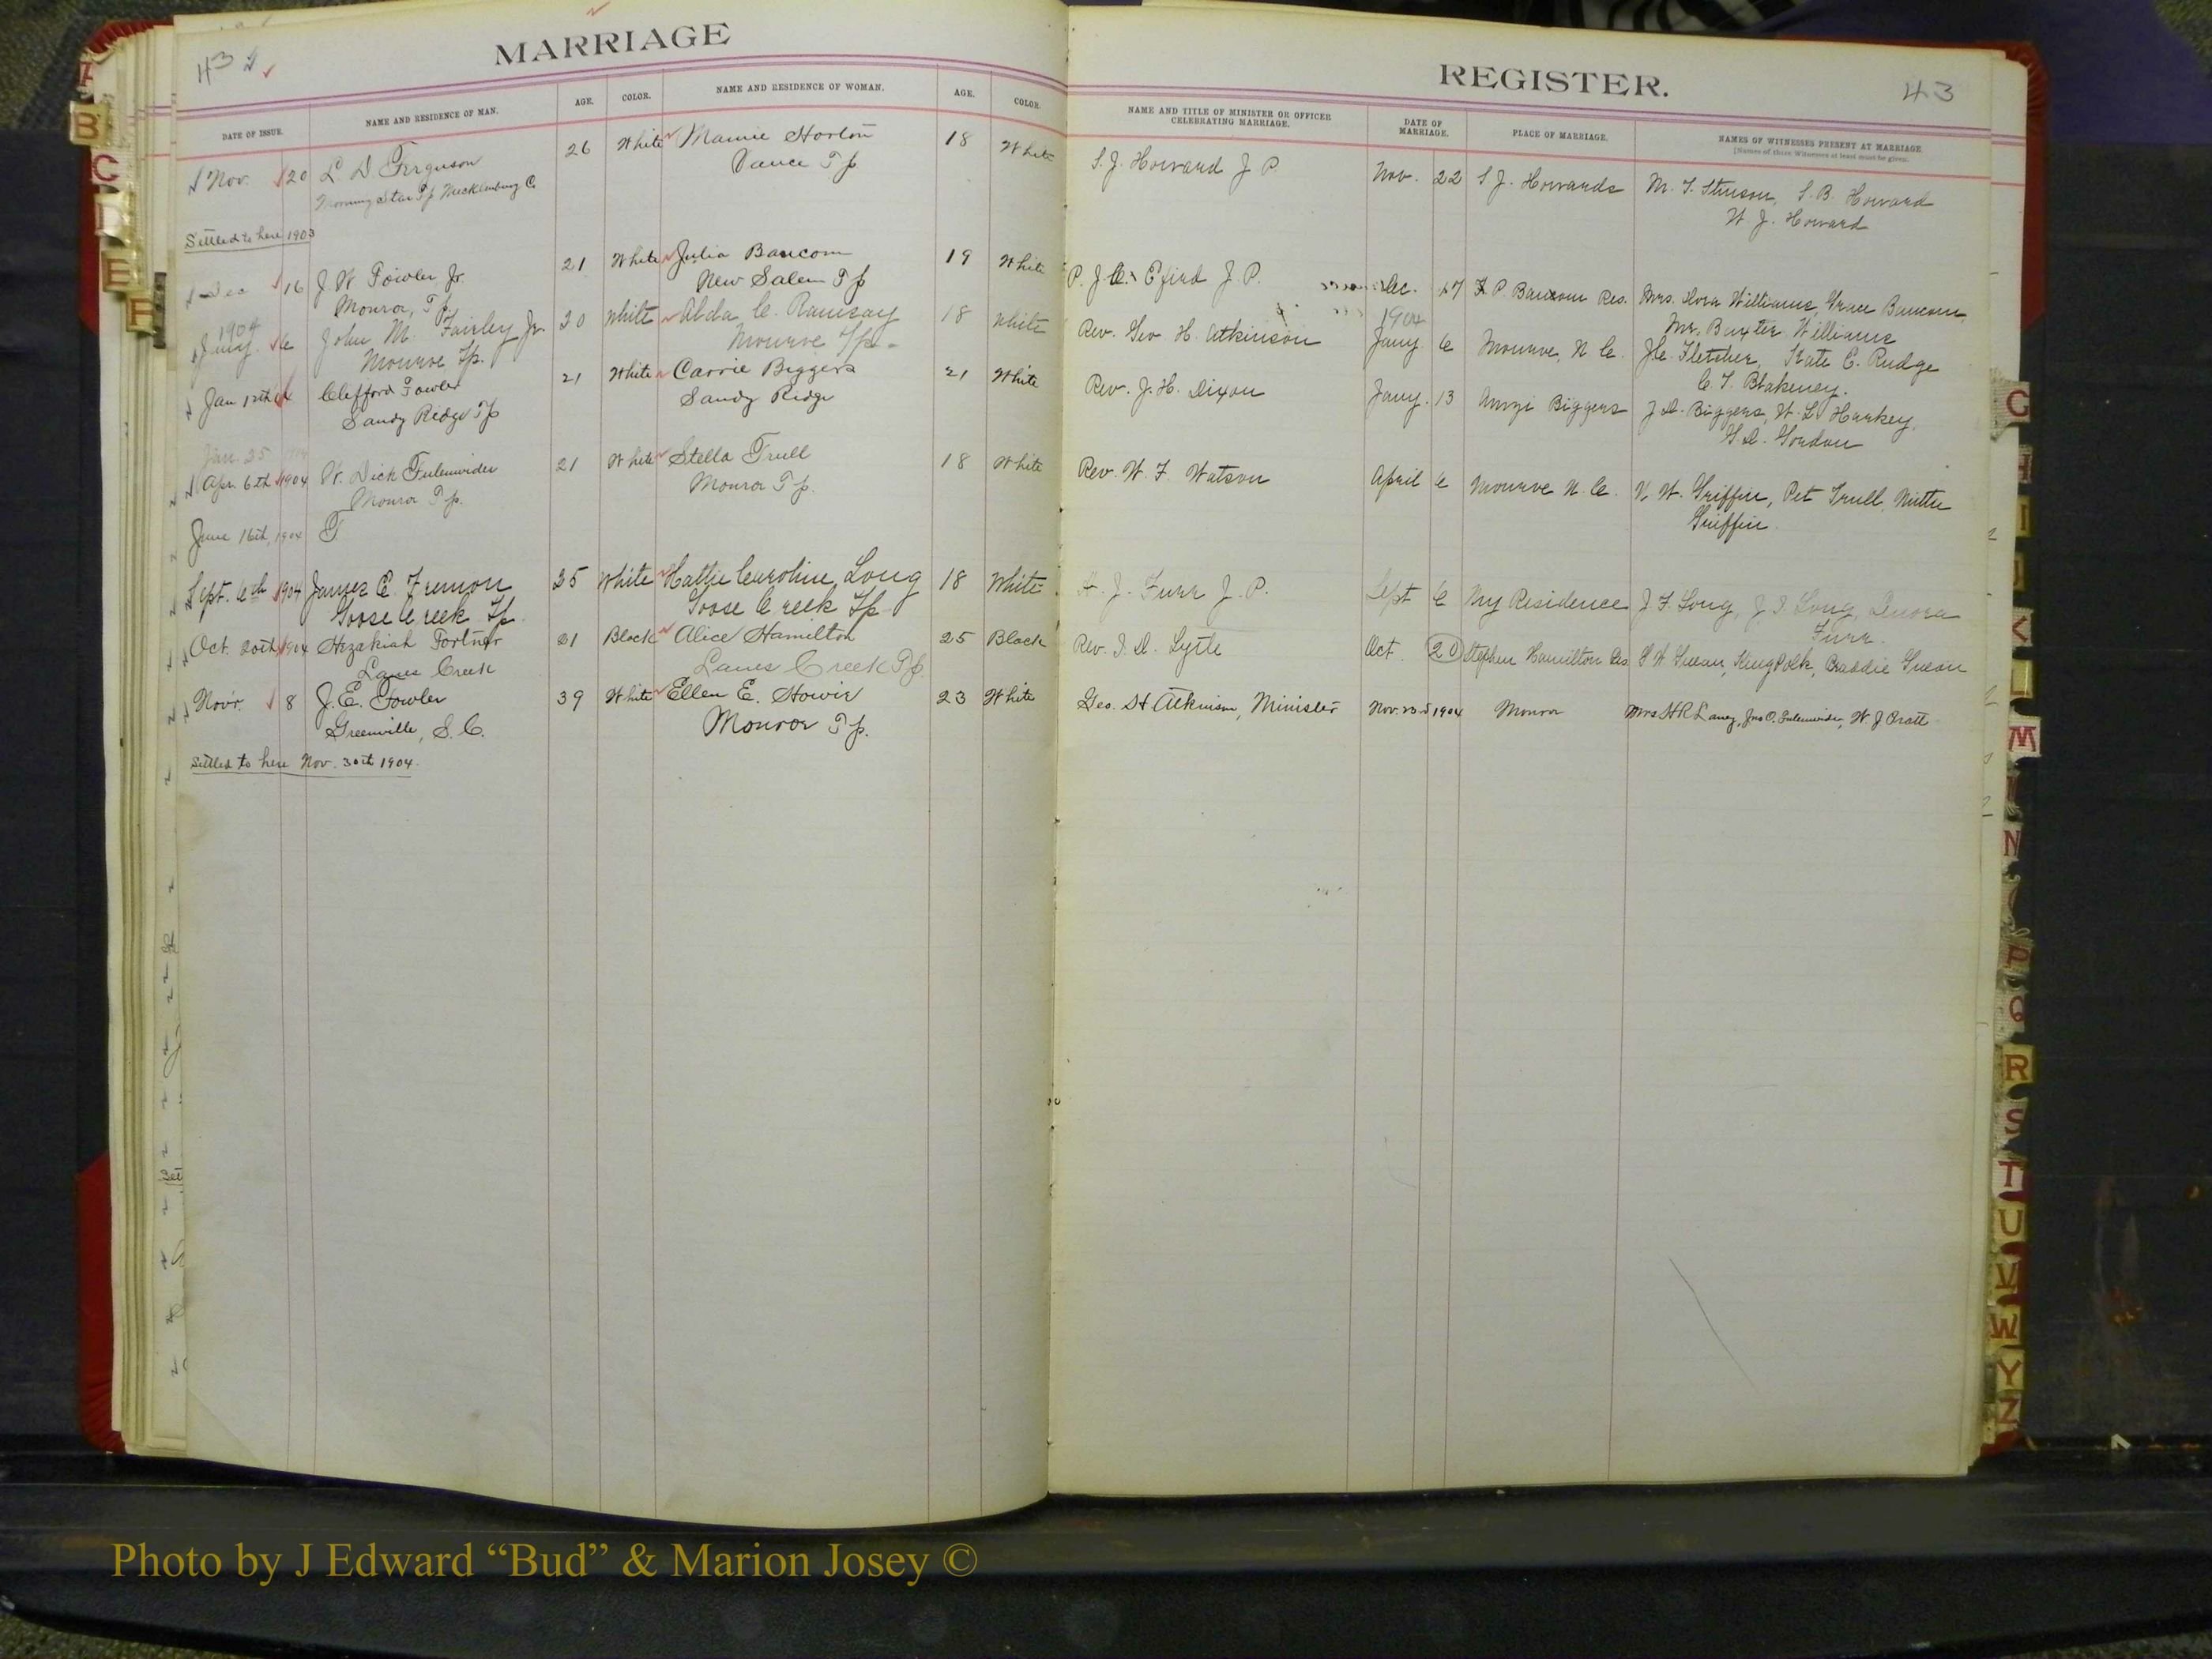 43
MARRIAGE
DATE OF ISSUE. NAME AND RESIDENCE OF MAN. AGE. COLOR. NAME AND RESIDENCE OF WOMAN. AGE. COLOR.
Nov. 20 L. D. Ferguson 26 White Mamie Horton 18 White
Morning Star Tp Mecklenburg Co Vance Tp
Settled to here 1903
Dec 16 J. W. Fowler Jr. 21 White Julia Baucom 19 White
Monroe, Tp. New Salem Tp
1904
Jany. 6 John M. Fairley Jr. 30 White Abda C. Ramsay 18 White
Monroe Tp. Monroe Tp.
Jan 12th Clifford Fowler 21 White Carrie Biggers 21 White
Sandy Ridge Tp Sandy Ridge
Jan. 25
Apr. 6th 1904 W. Dick Fulenwider 21 White Stella Trull 18 White
Monroe Tp. Monroe Tp.
June 16th, 1904 F
Sept. 6th 1904 James E. Fremon 35 White Hattie Caroline Long 18 White
Goose Creek Tp. Goose Creek Tp
Oct. 20th 1904 Hezakiah Fortner 21 Black Alice Hamilton 25 Black
Lanes Creek Lanes Creek Tp
Novr. 8 J. E. Fowler 39 White Ellen E. Howie 23 White
Greenville, S. C. Monroe Tp.
Settled to here Nov. 30th 1904.
REGISTER.
43
NAME AND TITLE OF MINISTER OR OFFICER CELEBRATING MARRIAGE. DATE OF MARRIAGE. PLACE OF MARRIAGE. NAMES OF WITNESSES PRESENT AT MARRIAGE
[Names of three Witnesses at least must be given.
S. J. Howard J P. Nov. 22 S. J. Howards M. T. Stinson, S. B. Howard
W. J. Howard
P. J. C. Efird J. P. Dec. 17 P. Baucom Res. Mrs. Dora Williams, Grace Baucom,
Mr. Baxter Williams
1904
Rev. Geo H. Atkinson Jany. 6 Monroe, N C. J.C. Fletcher, Kate E. Rudge
C. T. Blakeney.
Rev. J. H. Dixon Jany. 13 Amzi Biggers J. D. Biggers, W. L. Harkey,
Gordon
Rev. W. F. Watson April 6 Monroe N. C. V. W. Griffin, Pet Trull,
Griffin
J. Furr J. P. Sept 6 My Residence J. F. Long, Long,
Furr.
Rev. I. D. Lytle Oct. 20 Stephen Hamilton Res. King Polk,
Geo. H Atkinson, Minister Nov. 23rd 1904 Monroe Mrs H R Laney, Jno O. Fulenwider, W J Pratt
Photo by J Edward “Bud” & Marion Josey ©
A
B
C
D
E
F
G
H
I
J
K
L
M
N
P
Q
R
S
T
U
V
W
Y
Z